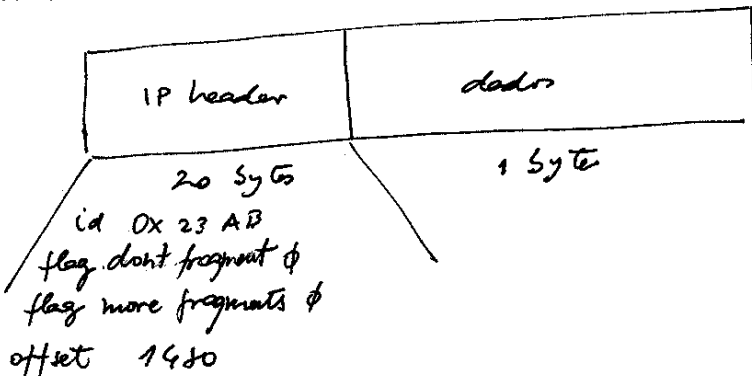 IP header dados
20 bytes 1 byte
id 0x 23 AB
flag dont fragment φ
flag more fragments φ
offset 1480